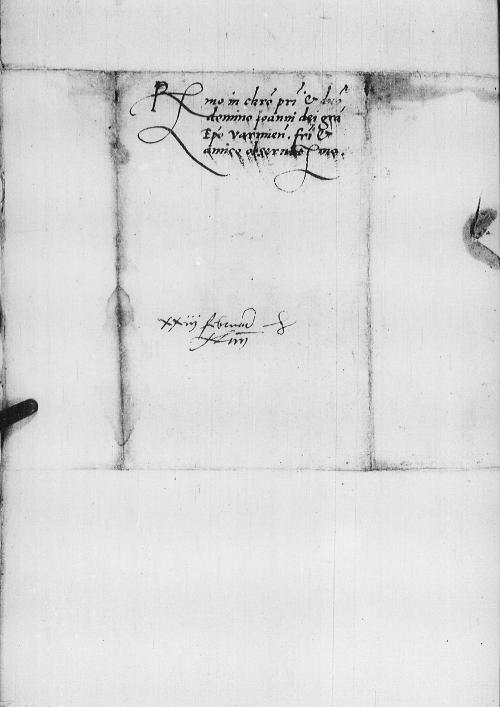 R mo in chro pri & dno
domino Joanni dei gra
Epo Varmien. fri &
amico obserualmo.
xxiij februar
XLIIII